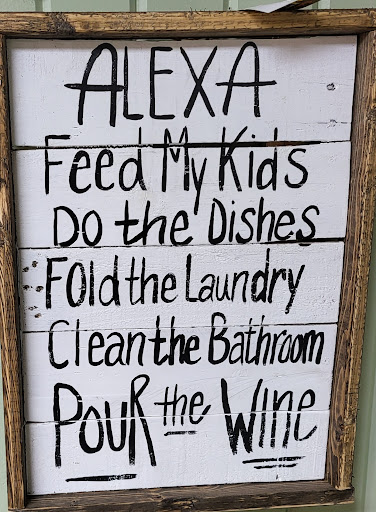 ALEXA
Feed My Kids
Do the Dishes
Fold the Laundry
Clean the Bathroom
POUR the WINE